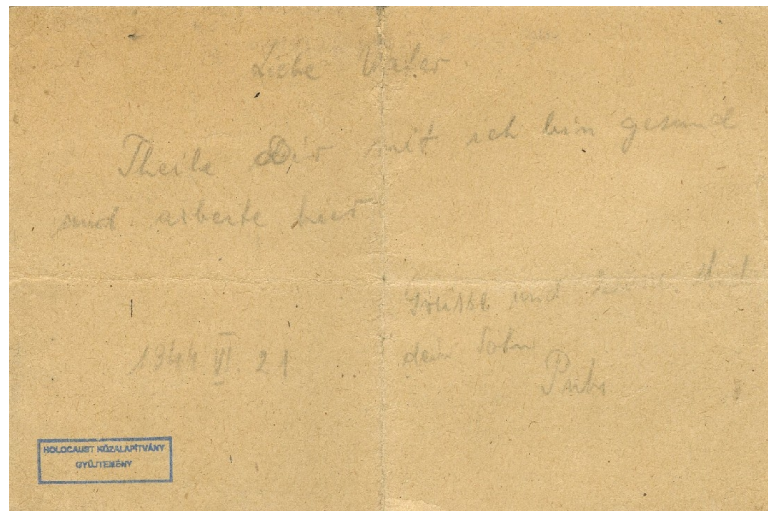 Liebe Vater
Theile Dir mit ich bin gesund
und arbeite hier
Grüsse und
dein Sohn
1944 VI. 21
HOLOCAUST KÖZALAPÍTVÁNY
GYŰJTEMÉNY